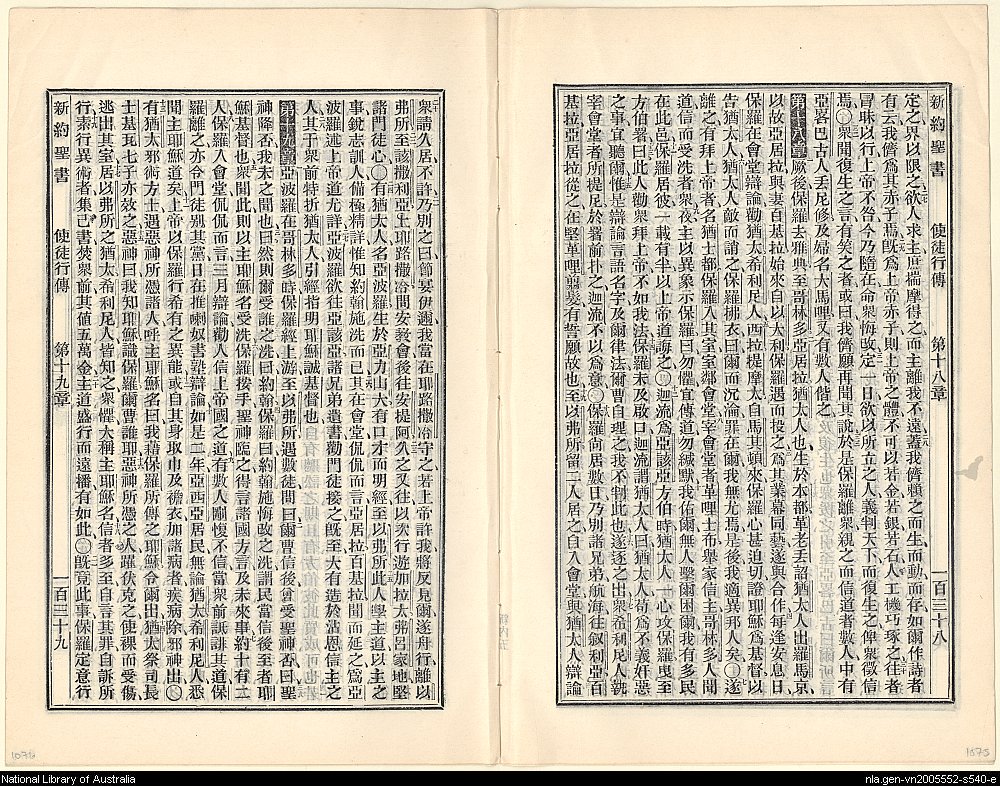 新約聖書 使徒行傳 第十八章 一百三十八
定之界以限之欲人求主庶揣摩得之而主離我不遠蓋我儕賴之而生而動而存如爾作詩者
有云我儕爲其赤子焉旣爲上帝赤子則上帝之體不可以若金若銀若石人工機巧琢之往者
冒昧以行上帝不咎今乃隨在命衆悔改定一日欲以所立之人義判天下而復生之俾衆徵信
焉〇衆聞復生之言有笑之者或曰我儕願再聞其說於是保羅離衆親之而信道者數人中有
亞畧巴古人丟尼修及婦名大馬哩又有數人偕之
第十八章厥後保羅去雅典至哥林多亞居拉猶太人也生於本都革老丟詔猶太人出羅馬京
以故亞居拉與妻百基拉始來自以大利保羅遇而投之爲其業幕同藝遂與合作每逢安息日
保羅在會堂辯論勸猶太希利尼人西拉提摩太自馬其頓來保羅心甚迫切證耶穌爲基督以
告猶太人猶太人敵而謗之保羅拂衣曰爾而沉淪罪在爾我無尤焉是後我適異邦人矣〇遂
離之有拜上帝者名猶士都保羅入其室室鄰會堂宰會堂者革哩士布舉家信主哥林多人聞
道信而受洗者衆夜主以異象示保羅曰勿懼宜傳道勿緘默我佑爾無人擊爾困爾我有多民
在此邑保羅居彼一載有半以上帝道誨之〇迦流爲亞該亞方伯時猶太人一心攻保羅曳至
方伯署曰此人勸衆拜上帝不如我法保羅未及啟口迦流謂猶太人曰猶太人苟爲不義奸惡
之事宜聽爾惟是辯論言語名字及爾律法爾曹自理之我不判此也遂逐之出衆希利尼人執
宰會堂者所提尼於署前扑之迦流不以爲意〇保羅尚居數日乃別諸兄弟航海往敘利亞百
基拉亞居拉從之在堅革哩翦髮有誓願故也至以弗所留二人居之自入會堂與猶太人辯論
衆請久居不許乃別之曰節宴伊邇我當在耶路撒冷守之若上帝許我將反見爾遂舟行離以
弗所至該撒利亞上耶路撒冷問安敎會後往安提阿久之又往以次行遊加拉太弗呂家地堅
諸門徒心〇有猶太人名亞波羅生於亞力山大有口才而明經至以弗所此人學主道以主之
事銳志訓人備極精詳惟知約翰施洗而已其在會堂侃侃而言亞居拉百基拉聞而延之爲亞
波羅述上帝道尤詳亞波羅欲往亞該亞諸兄弟遺書勸門徒接之旣至大有造於沾恩信主之
人其于衆前特折猶太人引經指明耶穌誠基督也
第十九章亞波羅在哥林多時保羅經上游至以弗所遇數徒問曰爾曹信後曾受聖神否曰聖
神降否我未之聞也曰然則爾受誰之洗曰約翰保羅曰約翰施悔改之洗謂民當信後至者耶
穌基督也衆聞此則以主耶穌名受洗保羅按手聖神臨之得言諸國方言及未來事約十有二
人保羅入會堂侃侃而言三月辯論勸人信上帝國之道有數人剛愎不信當衆前誹謗其道保
羅離之亦令門徒別其黨日在推喇奴書塾辯論如是二年亞西亞居民無論猶太希利尼人悉
聞主耶穌道矣上帝以保羅行希有之異能或自其身取巾及襜衣加諸病者疾病除邪神出〇
有猶太邪術方士遇惡神所憑諸人呼主耶穌名曰我藉保羅所傳之耶穌令爾出猶太祭司長
士基瓦七子亦效之惡神曰我知耶穌識保羅爾曹誰耶惡神所憑之人躍伏克之使裸而受傷
逃出其室居以弗所之猶太希利尼人皆知之衆懼大稱主耶穌名信者多至自言其罪自訴所
行素行異術者集己書焚衆前其値五萬金主道盛行而遠播有如此〇旣竟此事保羅定意行
新約聖書 使徒行傳 第十九章 一百三十九
1076
1075
National Library of Australia
nla.gen-vn2005552-s540-e